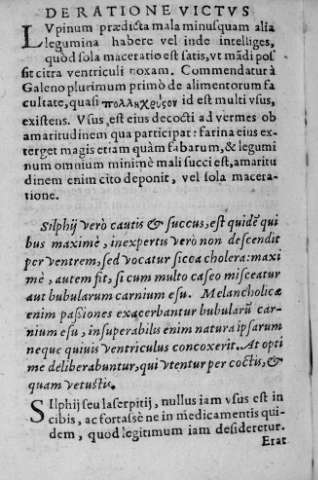 DE RATIONE VICTVS
LVpinum prædicta mala minusquam alia
legumina habere vel inde intelliges,
quòd sola maceratio est satis, vt mādi pos
sit citra ventriculi noxam. Commendatur à
Galeno plurimum primò de alimentorum fa
cultate, quasi πολλῆχρῦσον id est multi vsus,
existens. Vsus, est eius decocti ad vermes ob
amaritudinem qua participat: farina eius ex-
terget magis etiam quàm fabarum, & legumi
num omnium minimè mali succi est, amaritu
dinem enim cito deponit, vel sola macera-
tione.
Silphij verò caulis & succus, est quidē qui
bus maximè, inexpertis verò non descendit
per ventrem, sed vocatur sicca cholera: maxi
mè, autem fit, si cum multo caseo misceatur
aut bubularum carnium esu. Melancholicæ
enim passiones exacerbantur bubularū car-
nium esu, insuperabilis enim natura ipsarum
neque quiuis ventriculus concoxerit. At opti
me deliberabuntur, qui vtentur per coctis, &
quam vetustis.
SIlphij seu laserpitij, nullus iam vsus est in
cibis, ac fortassè ne in medicamentis qui-
dem, quod legitimum iam desideretur.
Erat